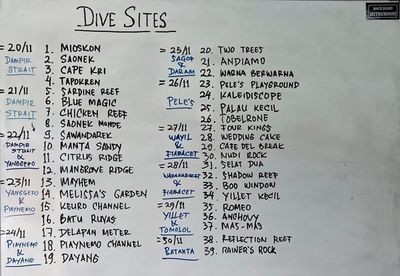 DIVE SITES
WHITE BOARD
MITSUBINSHI
=20/11
DAMPIR
STRAIT
1. MIOSKON
2. SAONEK
3. CAPE KRI
4. TAPOKREN
=21/11
DAMPIR
STRAIT
5. SARDINE REEF
6. BLUE MAGIC
7. CHICKEN REEF
8. SAONEK MONDE
=22/11
DAMPIR
STRAIT
&
YANGGEFO
9. SAWANDAREK
10. MANTA SANDY
11. CITRUS RIDGE
12. MANGROVE RIDGE
=23/11
YANGGEFO
&
PIAYNEMO
13. MAYHEM
14. MELISSA'S GARDEN
15. KEURO CHANNEL
16. BATU RUFAS
=24/11
PIAYNEMO
&
DAYANG
17. DELAPAN METER
18. PIAYNEMO CHANNEL
19. DAYANG
=25/11
SAGOF
&
DARAM
20. TWO TREES
21. ANDIAMO
22. WARNA BERWARNA
=26/11
PELE'S
23. PELE'S PLAYGROUND
24. KALEIDISCOPE
25. PALAU KECIL
26. TOBELRONE
=27/11
WAYIL
&
FIABACET
27. FOUR KINGS
28. WEDDING CAKE
29. CAFE DEL BREAK
30. NUDI ROCK
=28/11
&
FIABACET
31. SELAT DUA
32. SHADOW REEF
33. BOO WINDOW
34. YILLET KECIL
=29/11
YILLET
&
TOMOLOL
35. ROMEO
36. ANCHOVY
37. MAS-MAS
=30/11
BATANTA
38. REFLECTION REEF
39. RAINER'S ROCK